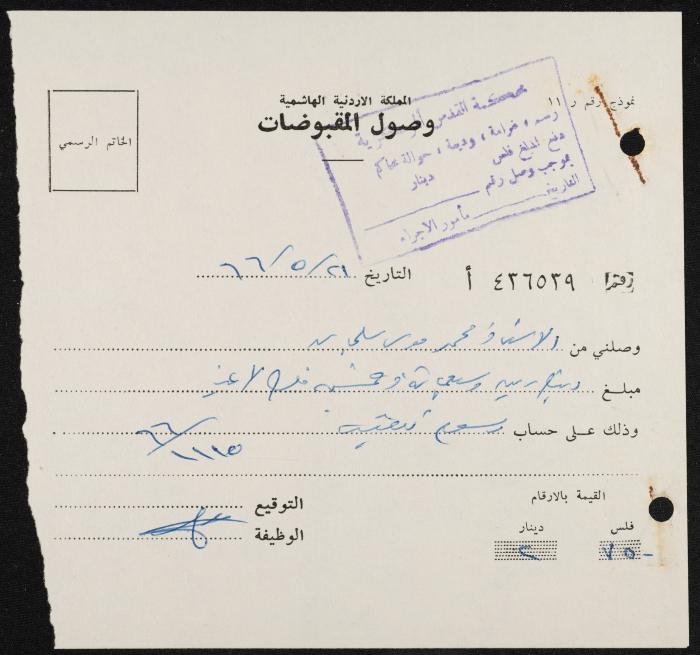 نموذج رقم ر ١١
المملكة الاردنية الهاشمية
وصول المقبوضات
الخاتم الرسمي
محكمة القدس
رسم ، غرامة ، وديعة ، حوالة محاكم
دفع المبلغ فلس دينار
بموجب وصل رقم
التاريخ
مأمور الاجراء
رقم أ ٤٣٦٥٣٩
التاريخ ٢١/٥/٦٦
وصلني من الاستاذ محمد موسى
مبلغ دينارين وسبعماية وخمسين فلس لا غير
وذلك على حساب رسوم
٦٦/١١١٥
القيمة بالارقام
فلس دينار
٧٥٠ ٢
التوقيع
الوظيفة